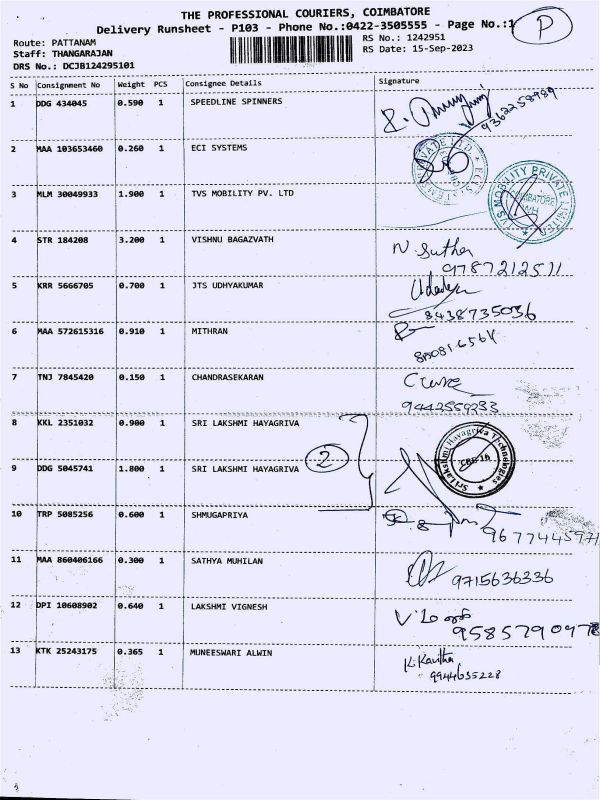 THE PROFESSIONAL COURIERS, COIMBATORE
Delivery Runsheet - P103 - Phone No.:0422-3505555 - Page No.:1
P
Route: PATTANAM
RS No.: 1242951
Staff: THANGARAJAN
RS Date: 15-Sep-2023
DRS No.: DCJB124295101
S No Consignment No Weight PCS Consignee Details Signature
1 DDG 434045 0.590 1 SPEEDLINE SPINNERS
9362258989
2 MAA 103653460 0.260 1 ECI SYSTEMS
3 MLM 30049933 1.900 1 TVS MOBILITY PV. LTD
TVS MOBILITY PRIVATE LIMITED
COIMBATORE
WH
4 STR 184208 3.200 1 VISHNU BAGAZVATH
N. Sutha
9787212511
5 KRR 5666705 0.700 1 JTS UDHYAKUMAR
8438735036
6 MAA 572615316 0.910 1 MITHRAN
7 TNJ 7845420 0.150 1 CHANDRASEKARAN
9442559233
8 KKL 2351032 0.900 1 SRI LAKSHMI HAYAGRIVA
2
Sri Lakshmi Hayagriva Technologies
9 DDG 5045741 1.800 1 SRI LAKSHMI HAYAGRIVA
10 TRP 5085256 0.600 1 SHMUGAPRIYA
9677445971
11 MAA 860406166 0.300 1 SATHYA MUHILAN
9715636336
12 DPI 10608902 0.640 1 LAKSHMI VIGNESH
13 KTK 25243175 0.365 1 MUNEESWARI ALWIN
K. Kavitha
9944635228